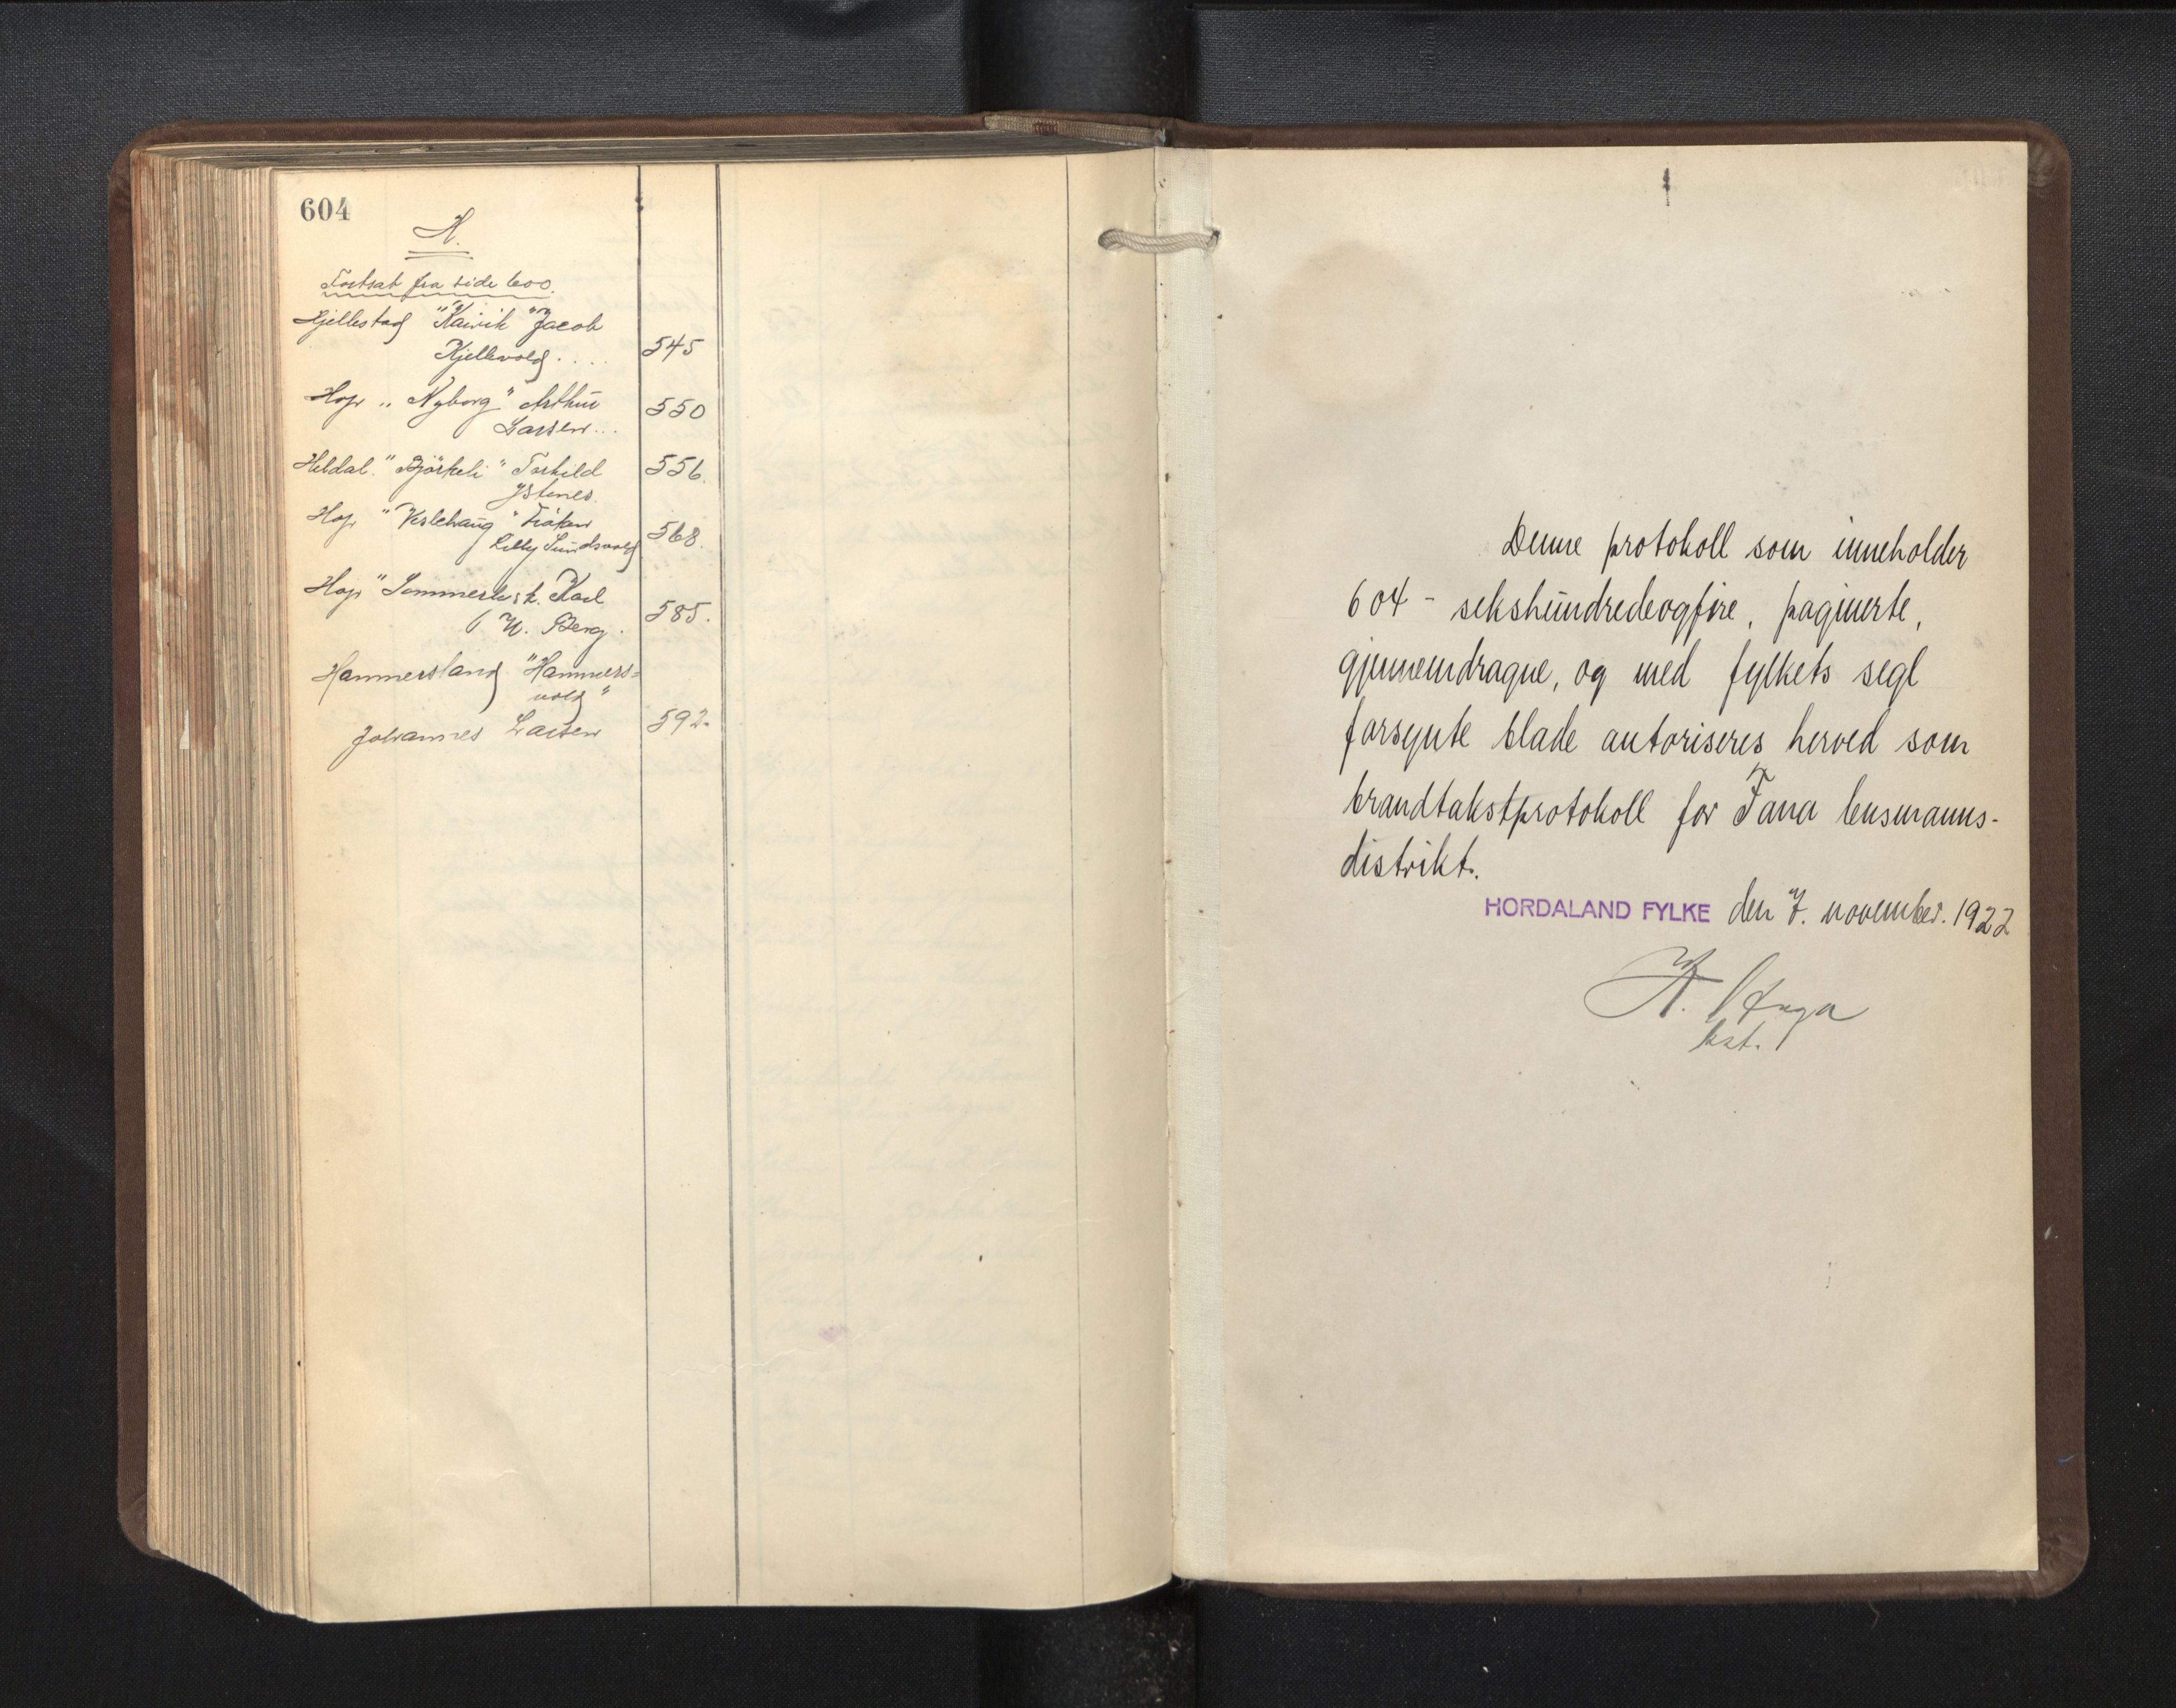 604
H.
Fortsat fra side 600.
Hjellestad "Kaivik" Jacob
Kjellevold .... 545
Hop „Nyborg" Arthur 550
Larsen...
Heldal. "Björkeli" Torkild 556.
Ystenes.
Hop "Veslehaug" Frøken 568.
Lilly Sundsvold
Hop "Sommerly st. Karl 585.
W. Berg.
Hammersland "Hammers=
vold"
Johannes Larsen 592.
Denne protokoll som inneholder
604 - sekshundredeogfire, paginerte,
gjennemdragne, og med fylkets segl
forsynte blade autoriseres herved som
brandtakstprotokoll for Fana lensmanns-
distrikt.
HORDALAND FYLKE den 7. november. 1922
kst.